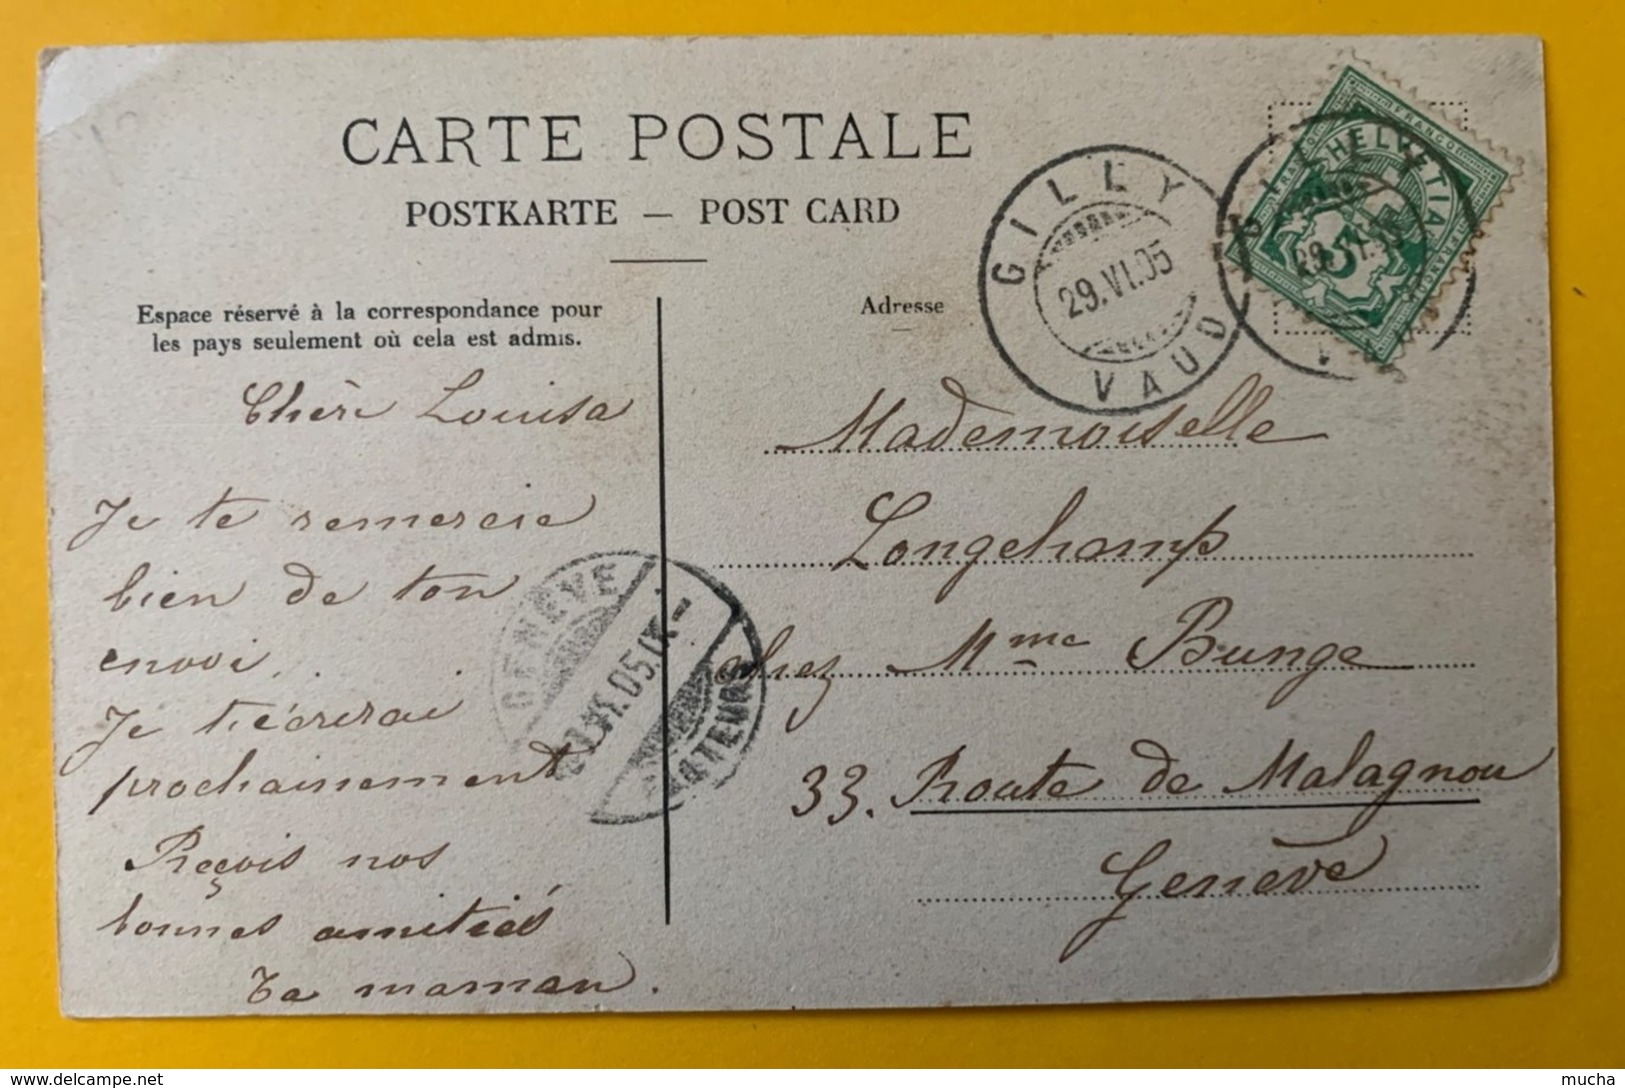 CARTE POSTALE
POSTKARTE — POST CARD
Espace réservé à la correspondance pour
les pays seulement où cela est admis.
Adresse
GILLY
29.VI.05
VAUD
GILLY
29.VI.05
HELVETIA
FRANCO
5
Chère Louisa
Je te remercie
bien de ton
envoi.
Je t'écrirai
prochainement
Reçois nos
bonnes amitiés
Ta maman.
GENÈVE
VI.05
Mademoiselle
Longchamp
chez Mme Bunge
33. Route de Malagnou
Genève
www.delcampe.net
mucha